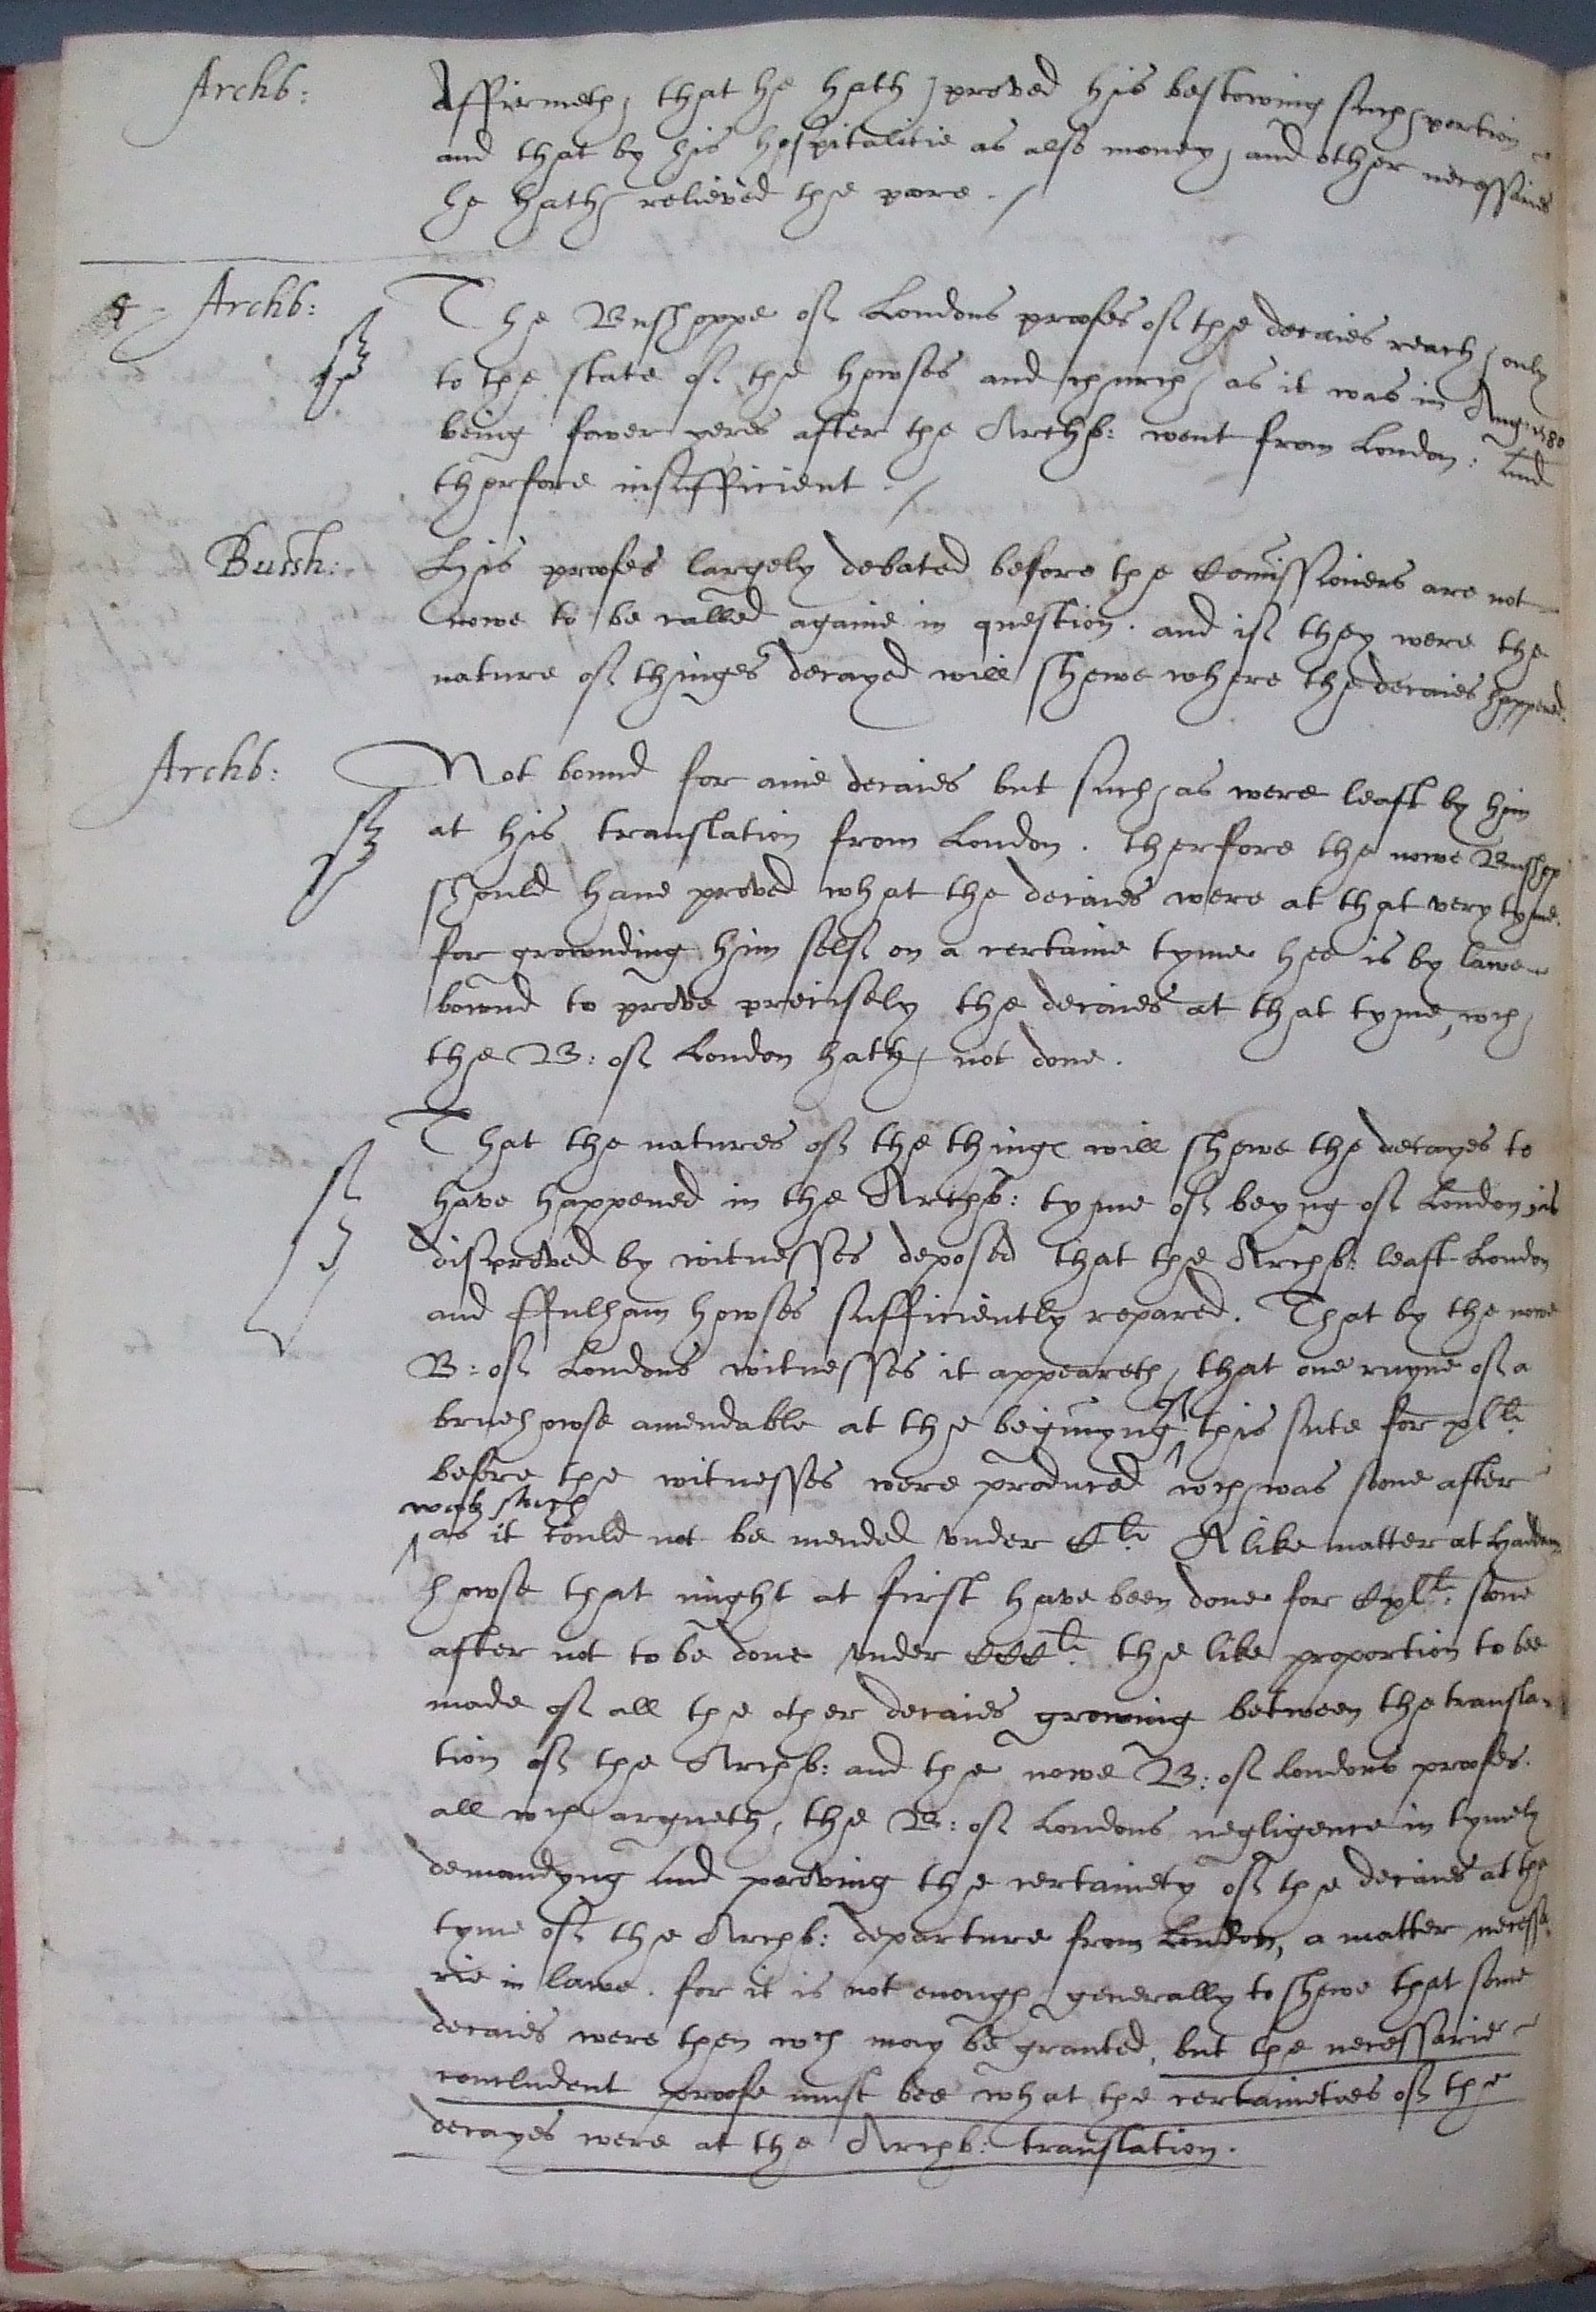 Archb: Affirmeth, that he hath proved his bestowing such portion
and that by his hospitalitie as also money, and other necessaries
he hath relieved the pore.
Archb: The Busshoppe of Londons proofes of the decaies reach only
to the state of the howses and church as it was in Aug. 1580
being fower yeres after the Archb: went from London: And
therfore insufficient.
Bussh: His proofes largely debated before the Comissioners are not
nowe to be called againe in question. and if they were the
nature of thinges decayed will shewe where the decaies happened.
Archb: Not bound for anie decaies but such as were leaft by him
at his translation from London. therfore the nowe Busshop
should haue proved what the decaies were at that very tyme.
for grownding him self on a certaine tyme hee is by lawe
bownd to prove precisely the decaies at that tyme, wch
the B: of London hath not done.
That the natures of the things will shewe the decayes to
have happened in the Archb: tyme of beyng of London, is
disproved by witnesses deposed that the Archb: leaft London
and Ffulham howses sufficiently repared. That by the nowe
B: of Londons witnesses it appeareth, that one ruyne of a
bruehowse amendable at the beginyng of this sute for xlli
before the witnesses were produced wch was soone after
was such
as it could not be mended vnder Cli A like matter at Haddam
howse that might at first have been done for Cxlli: sone
after not to be done vnder CCCli. the like proportion to bee
made of all the other decaies growing between the transla-
tion of the Archb: and the nowe B: of Londons proofes.
all wch argueth, the B: of Londons negligence in tymely
demandyng and proving the certainety of the decaies at the
tyme of the Archb: departure from London, a matter necessa-
rie in lawe. for it is not enough generally to shewe that some
decaies were then wch may be granted, but the necessarie
concludent proofe must bee what the certainetees of the
decayes were at the Archb: translation.